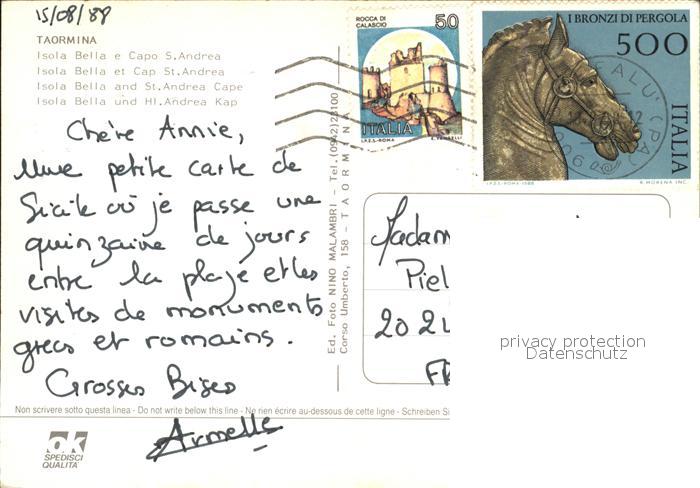 15/08/88
TAORMINA
Isola Bella e Capo S.Andrea
Isola Bella et Cap St.Andrea
Isola Bella and St.Andrea Cape
Isola Bella und Hl.Andrea Kap
Chère Annie,
Une petite carte de
Sicile où je passe une
quinzaine de jours
entre la plage et les
visites de monuments
grecs et romains.
Grosses Bises
Armelle
Non scrivere sotto questa linea - Do not write below this line - Ne rien écrire au-dessous de cette ligne - Schreiben Si
ok
SPEDISCI
QUALITÀ
Ed. Foto NINO MALAMBRI - Tel. (0942) 23100
Corso Umberto, 158 - TAORMINA
ROCCA DI
CALASCIO
50
ITALIA
I.P.Z.S.-ROMA
I BRONZI DI PERGOLA
500
ITALIA
I.P.Z.S.-ROMA-1988
R. MORENA INC.
CALU' (PA)
Madam
Piel
202
FR
privacy protection
Datenschutz